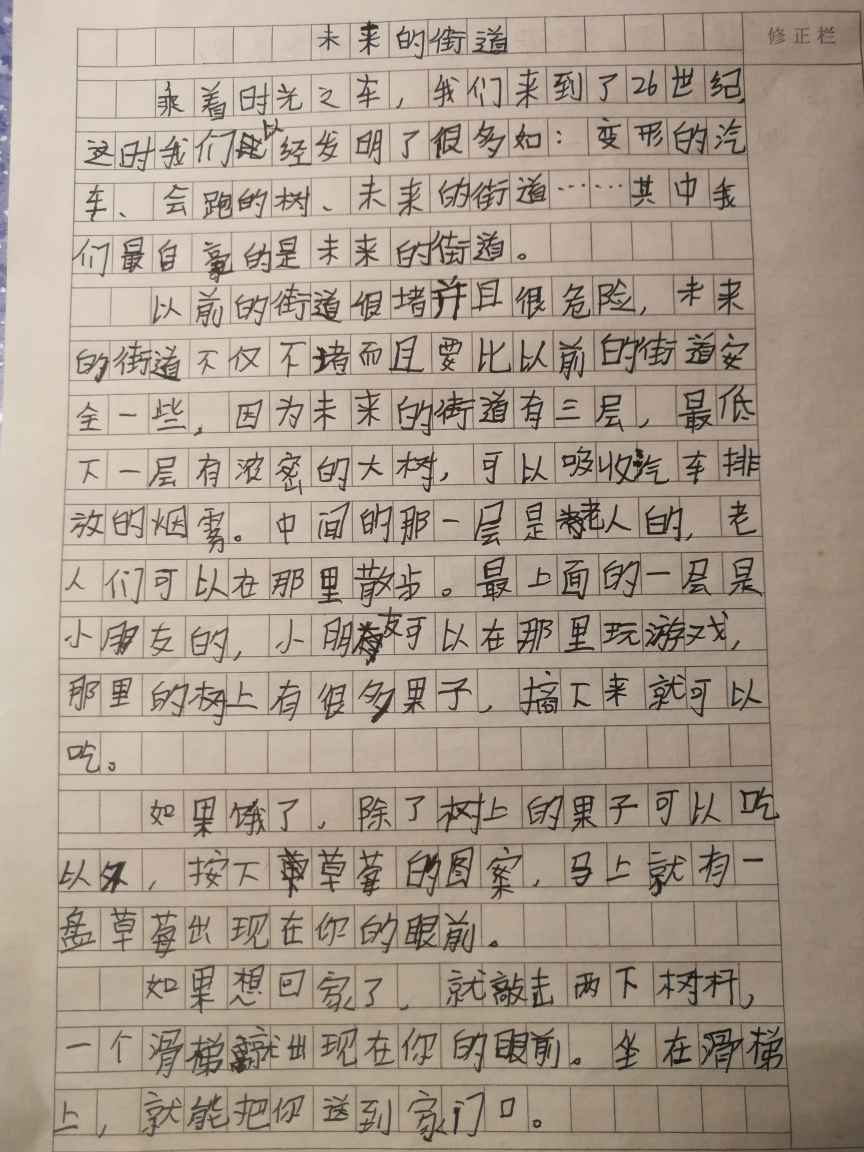 修正栏
未来的街道
乘着时光之车，我们来到了26世纪，
这时我们以经发明了很多如：变形的汽
车、会跑的树、未来的街道……其中我
们最自豪的是未来的街道。
以前的街道很堵并且很危险，未来
的街道不仅不堵而且要比以前的街道安
全一些，因为未来的街道有三层，最低
下一层有浓密的大树，可以吸收汽车排
放的烟雾。中间的那一层是老人的，老
人们可以在那里散步。最上面的一层是
小朋友的，小朋友可以在那里玩游戏，
那里的树上有很多果子，摘下来就可以
吃。
如果饿了，除了树上的果子可以吃
以外，按下草莓的图案，马上就有一
盘草莓出现在你的眼前。
如果想回家了，就敲击两下树杆，
一个滑梯就出现在你的眼前。坐在滑梯
上，就能把你送到家门口。